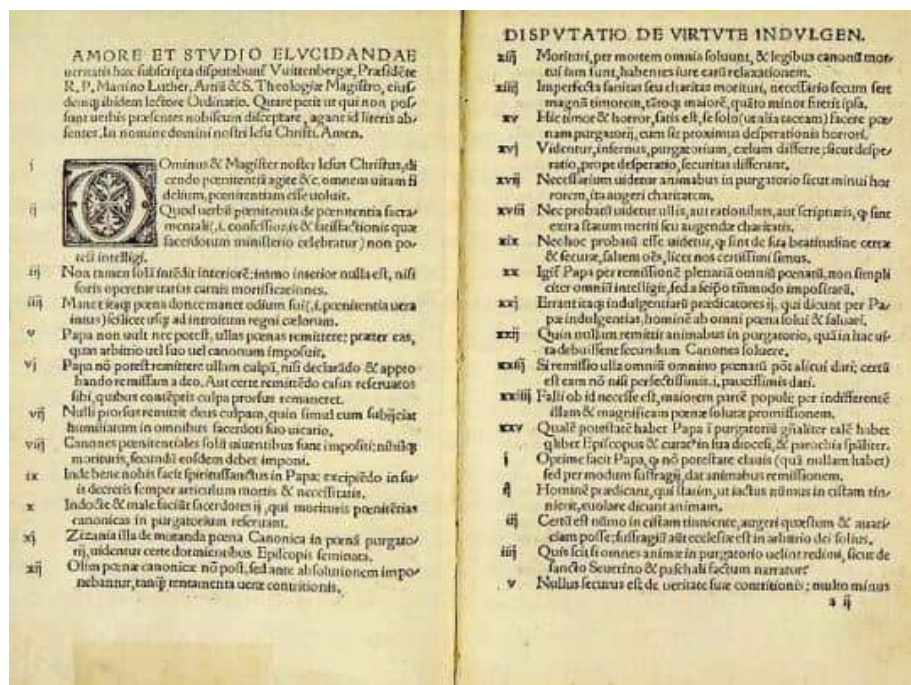 AMORE ET STVDIO ELVCIDANDAE
ueritatis hæc subscripta disputabunť Vuittenbergæ, Præsidēte
R. P. Martino Luther, Artiū & S. Theologiæ Magistro, eius-
demq; ibidem lectore Ordinatio. Quare petit ut qui non pos-
sunt uerbis præsentes nobiscum disceptare, agant id literis ab-
sentes. In nomine domini nostri Iesu Christi. Amen.
i Ominus & Magister noster Iesus Christus, di
cendo pœnitentiā agite &c. omnem uitam fi
delium, pœnitentiam esse uoluit.
ij Quod uerbū pœnitentia de pœnitentia sacra-
mentali (.i. confessiōis & satisfactionis quæ
sacerdotum ministerio celebratur) non po-
test intelligi.
iij Non tamen solā intēdit interiorē; immo interior nulla est, nisi
foris operetur uarias carnis mortificationes.
iiij Manet itaq; pœna donec manet odium sui (.i. pœnitentia uera
intus) scilicet usq; ad introitum regni cælorum.
v Papa non uult nec potest, ullas pœnas remittere; præter eas,
quas arbitrio uel suo uel canonum imposuit.
vj Papa nō potest remittere ullam culpā, nisi declarādo & appro
bando remissam a deo. Aut certe remittēdo casus reseruatos
sibi, quibus contēptis culpa prorsus remaneret.
vij Nulli prorsus remittit deus culpam, quin simul eum subijciat
humiliatum in omnibus sacerdoti suo uicario.
viij Canones pœnitentiales solū uiuentibus sunt impositi; nihilq;
morituris, secundū eosdem debet imponi.
ix Inde bene nobis facit spiritussanctus in Papa; excipiēdo in su-
is decretis semper articulum mortis & necessitatis.
x Indocte & male faciūt sacerdotes ij, qui morituris pœnitētias
canonicas in purgatorium reseruant.
xj Zizania illa de mutanda pœna Canonica in pœnā purgato-
rij, uidentur certe dormientibus Episcopis seminata.
xij Olim pœnæ canonicæ nō post, sed ante absolutionem impo-
nebantur, tanq̄ tentamenta ueræ contritionis.
DISPVTATIO DE VIRTVTE INDVLGEN.
xiij Morituri, per mortem omnia soluunt, & legibus canonū mor-
tui iam sunt, habentes iure earū relaxationem.
xiiij Imperfecta sanitas seu charitas morituri, necessario secum fert
magnū timorem, tātoq; maiorē, quāto minor fuerit ipsa.
xv Hic timor & horror, satis est, se solo (ut alia taceam) facere pœ-
nam purgatorij, cum sit proximus desperationis horrori.
xvj Videntur, infernus, purgatorium, cælum differre; sicut despe-
ratio, prope desperatio, securitas differunt.
xvij Necessarium uidetur animabus in purgatorio sicut minui hor
rorem, ita augeri charitatem.
xviij Nec probatū uidetur ullis, aut rationibus, aut scripturis, q̄ sint
extra statum meriti seu augendæ charitatis.
xix Nec hoc probatū esse uidetur, q̄ sint de sua beatitudine certæ
& securæ, saltem oēs, licet nos certissimi simus.
xx Igiť Papa per remissionē plenariā omniū pœnarū, non simpli
citer omniū intelligit, sed a seipō tm̄modo impositarū.
xxj Errant itaq; indulgentiarū prædicatores ij, qui dicunt per Pa-
pæ indulgentias, hominē ab omni pœna solui & saluari.
xxij Quin nullam remittit animabus in purgatorio, quā in hac ui-
ta debuissent secundum Canones soluere.
xxiij Si remissio ulla omniū omnino pœnarū pōt alicui dari; certū
est eam nō nisi perfectissimis, .i. paucissimis dari.
xxiiij Falli ob id necesse est, maiorem partē populi; per indifferentē
illam & magnificam pœnæ solutæ promissionem.
xxv Qualē potestatē habet Papa ī purgatoriū gn̄aliter talē habet
q̄libet Episcopus & curat͛ in sua diocesi, & parochia sp̄aliter.
j Optime facit Papa, q̄ nō potestate clauis (quā nullam habet)
sed per modum suffragij, dat animabus remissionem.
ij Hominē prædicant, qui statim, ut iactus nūmus in cistam tin-
nierit, euolare dicunt animam.
iij Certū est nūmo in cistam tinniente, augeri quæstum & auari-
ciam posse; suffragiū aūt ecclesiæ est in arbitrio dei solius.
iiij Quis scit si omnes animæ in purgatorio uelint redimi, sicut de
sancto Seuerino & paschali factum narratur?
v Nullus securus est de ueritate suæ contritionis; multo minus
a ij